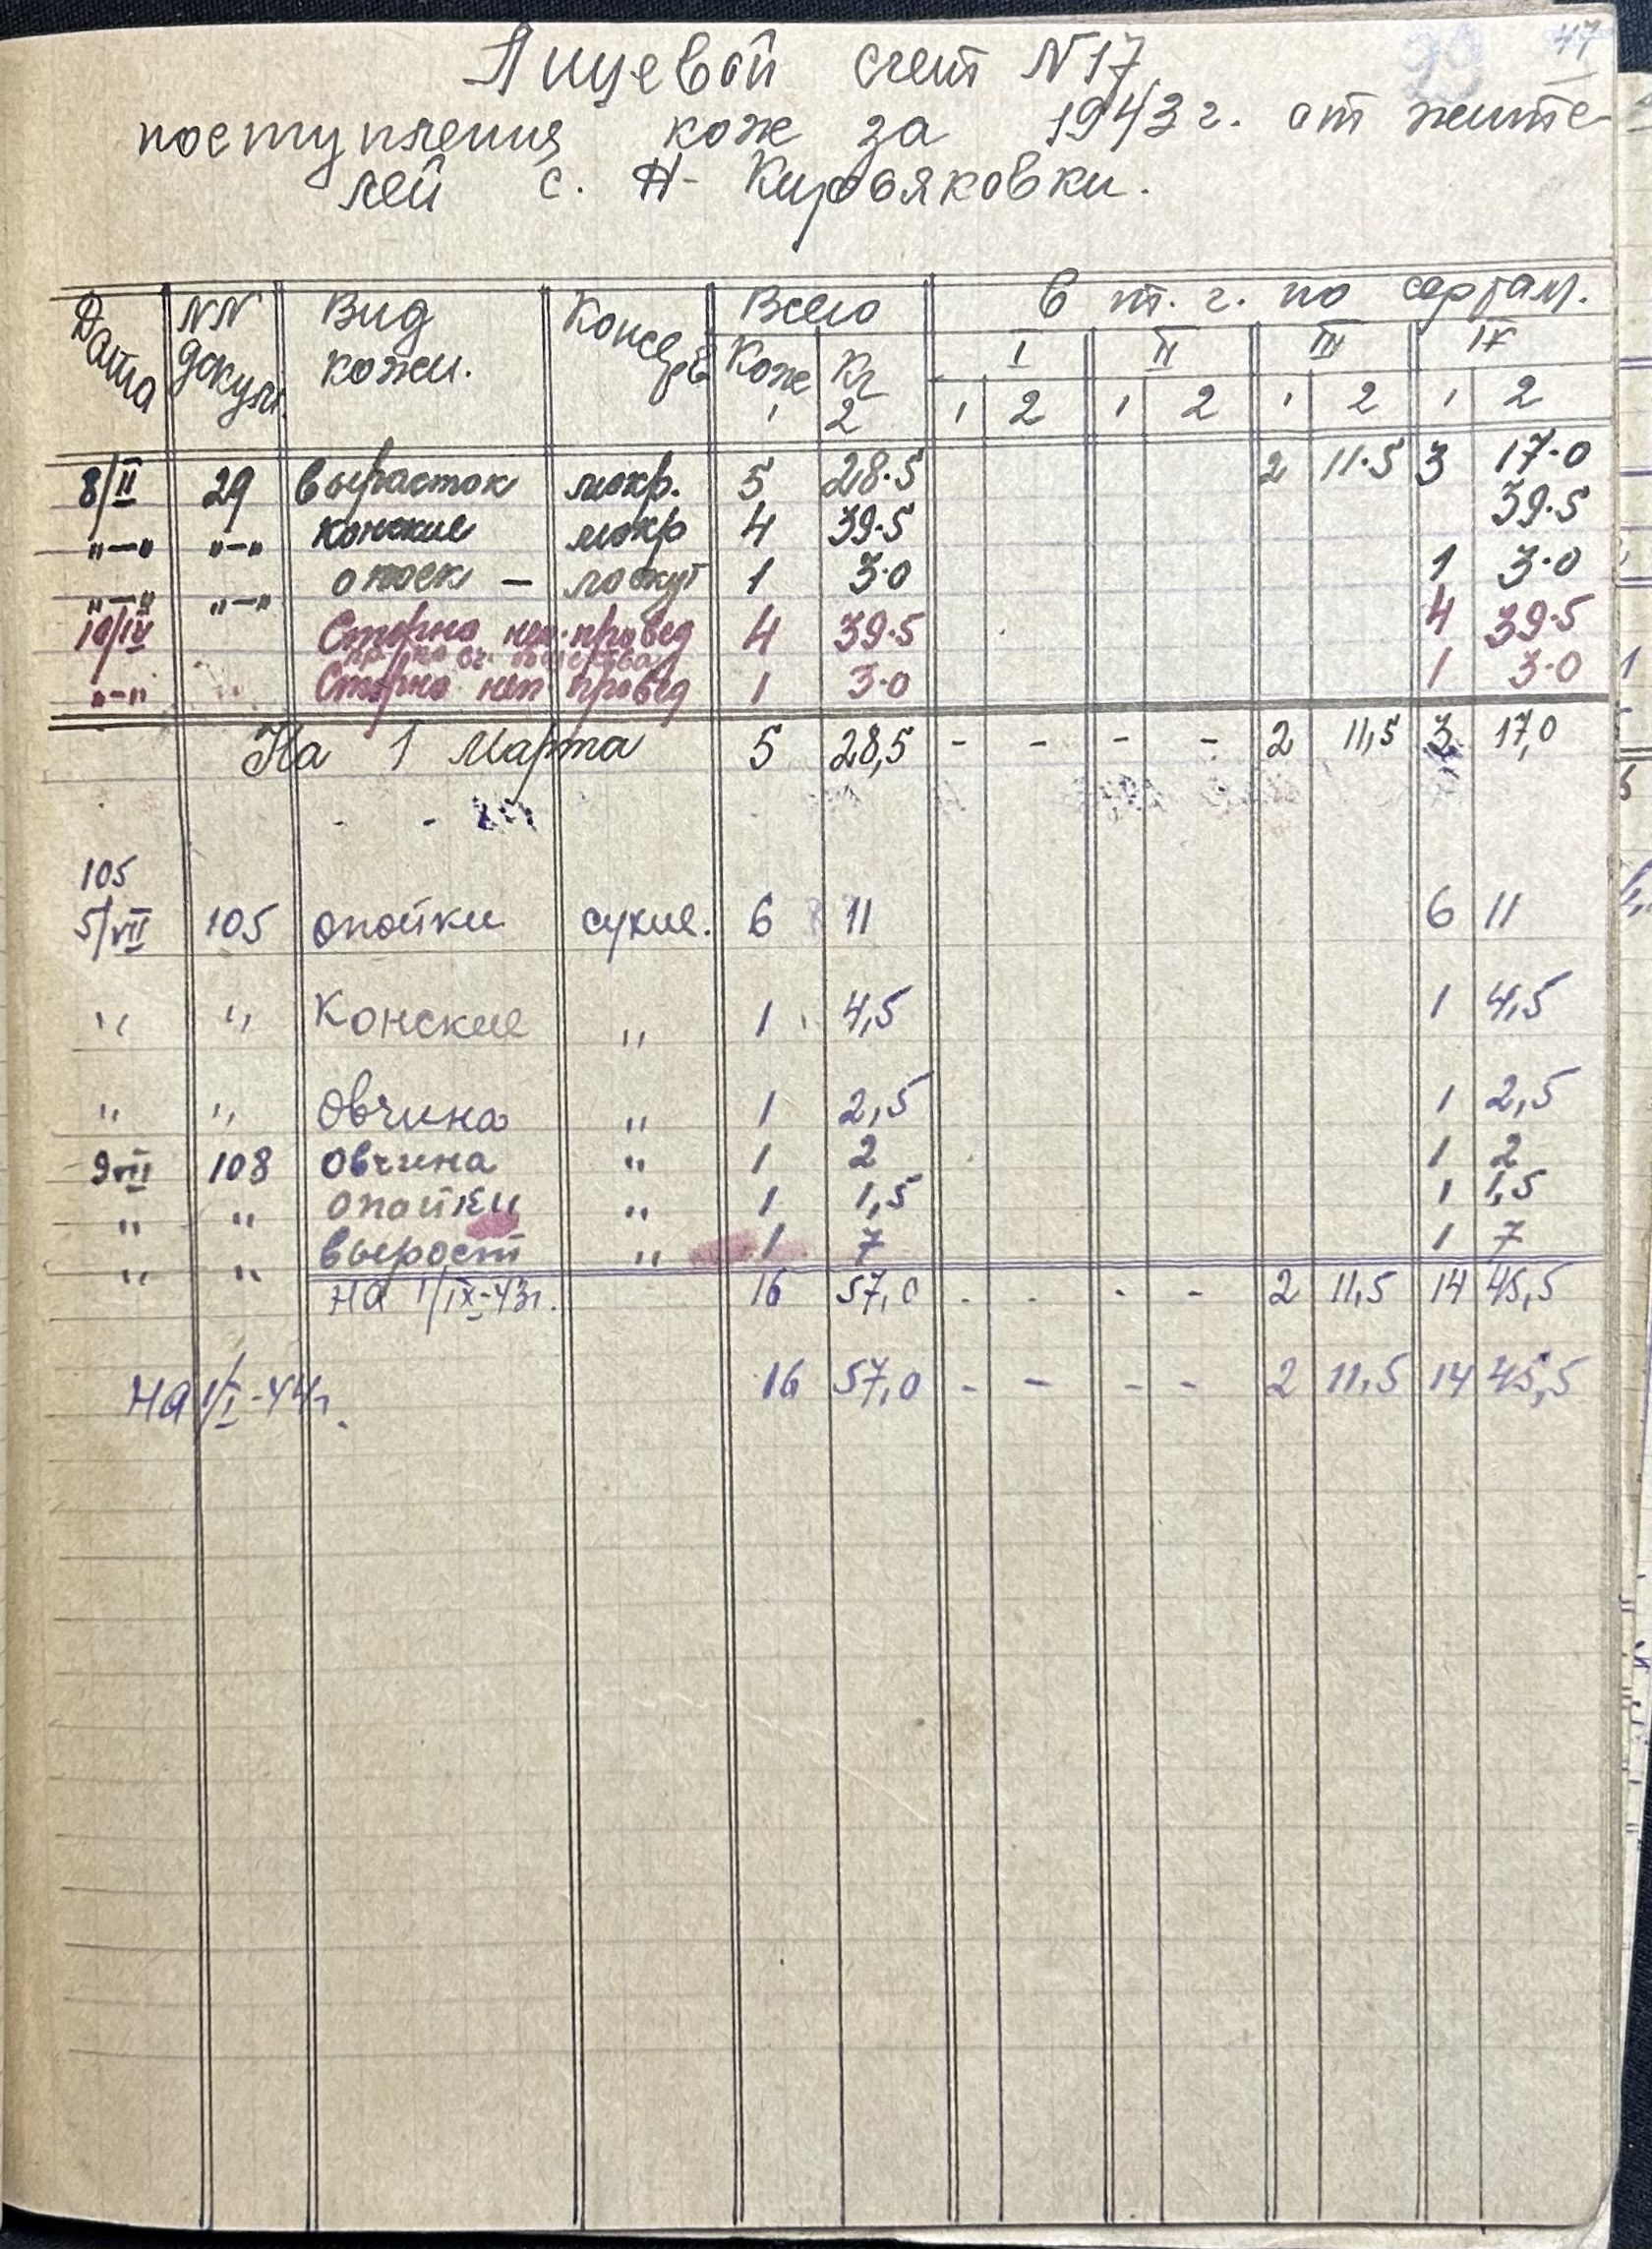 47
29
Лицевой счет N17
поступления кож за 1943 г. от жите-
лей с. Н-Кирьяковки.
Дата NN докум. Вид кожи. Консерв Всего В т. ч. по сортам.
Кож Кг I II III IV
1 2 1 2 1 2 1 2 1 2
8/II 29 вырасток мокр. 5 28.5 2 11.5 3 17.0
"-" "-" конские мокр 4 39.5 39.5
"-" "-" опоек - лоскут 1 3.0 1 3.0
10/IV Сторно неп. провед 4 39.5 4 39.5
"-" Сторно неп провед 1 3.0 1 3.0
На 1 Марта 5 28,5 - - - - 2 11,5 3 17,0
- -
105
5/VII 105 опойки сухие. 6 11 6 11
" " Конские " 1 4,5 1 4,5
" " Овчина " 1 2,5 1 2,5
9VII 108 Овчина " 1 2 1 2
" " опойки " 1 1,5 1 1,5
" " вырост " 1 7 1 7
на 1/IX-43г. 16 57,0 - - - - 2 11,5 14 45,5
на 1/I-44г. 16 57,0 - - - - 2 11,5 14 45,5